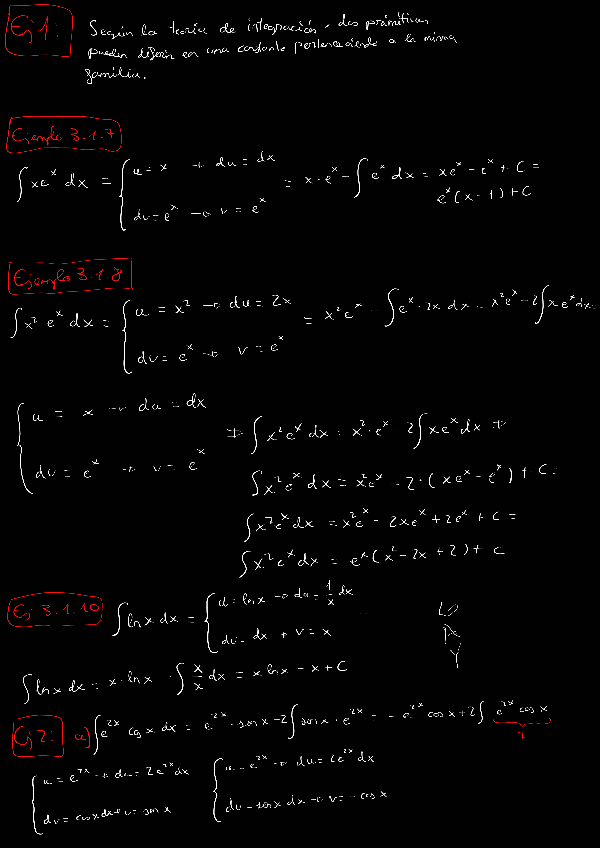 Ej 1: Según la teoría de integración, dos primitivas
pueden diferir en una constante perteneciendo a la misma
familia.
Ejemplo 3.1.7
∫xe^x dx = { u = x → du = dx
dv = e^x → v = e^x = x·e^x - ∫e^x dx = xe^x - e^x + C =
e^x(x-1)+C
Ejemplo 3.1.8
∫x² e^x dx = { u = x² → du = 2x
dv = e^x → v = e^x = x²e^x - ∫e^x·2x dx = x²e^x - 2∫xe^x dx
{ u = x → du = dx
dv = e^x → v = e^x
→ ∫x²e^x dx = x²·e^x - 2∫xe^x dx →
∫x²e^x dx = x²e^x - 2·(xe^x - e^x) + C =
∫x²e^x dx = x²e^x - 2xe^x + 2e^x + C =
∫x²e^x dx = e^x(x² - 2x + 2) + C
Ej 3.1.10
∫ln x dx = { u = ln x → du = 1/x dx
dv = dx → v = x
∫ln x dx = x·ln x - ∫x/x dx = x ln x - x + C
Ej 2: a) ∫e^2x cos x dx = e^2x · sen x - 2∫sen x · e^2x = - e^2x cos x + 2∫e^2x cos x
{ u = e^2x → du = 2e^2x dx
dv = cos x dx → v = sen x
{ u = e^2x → du = 2e^2x dx
dv = sen x dx → v = -cos x